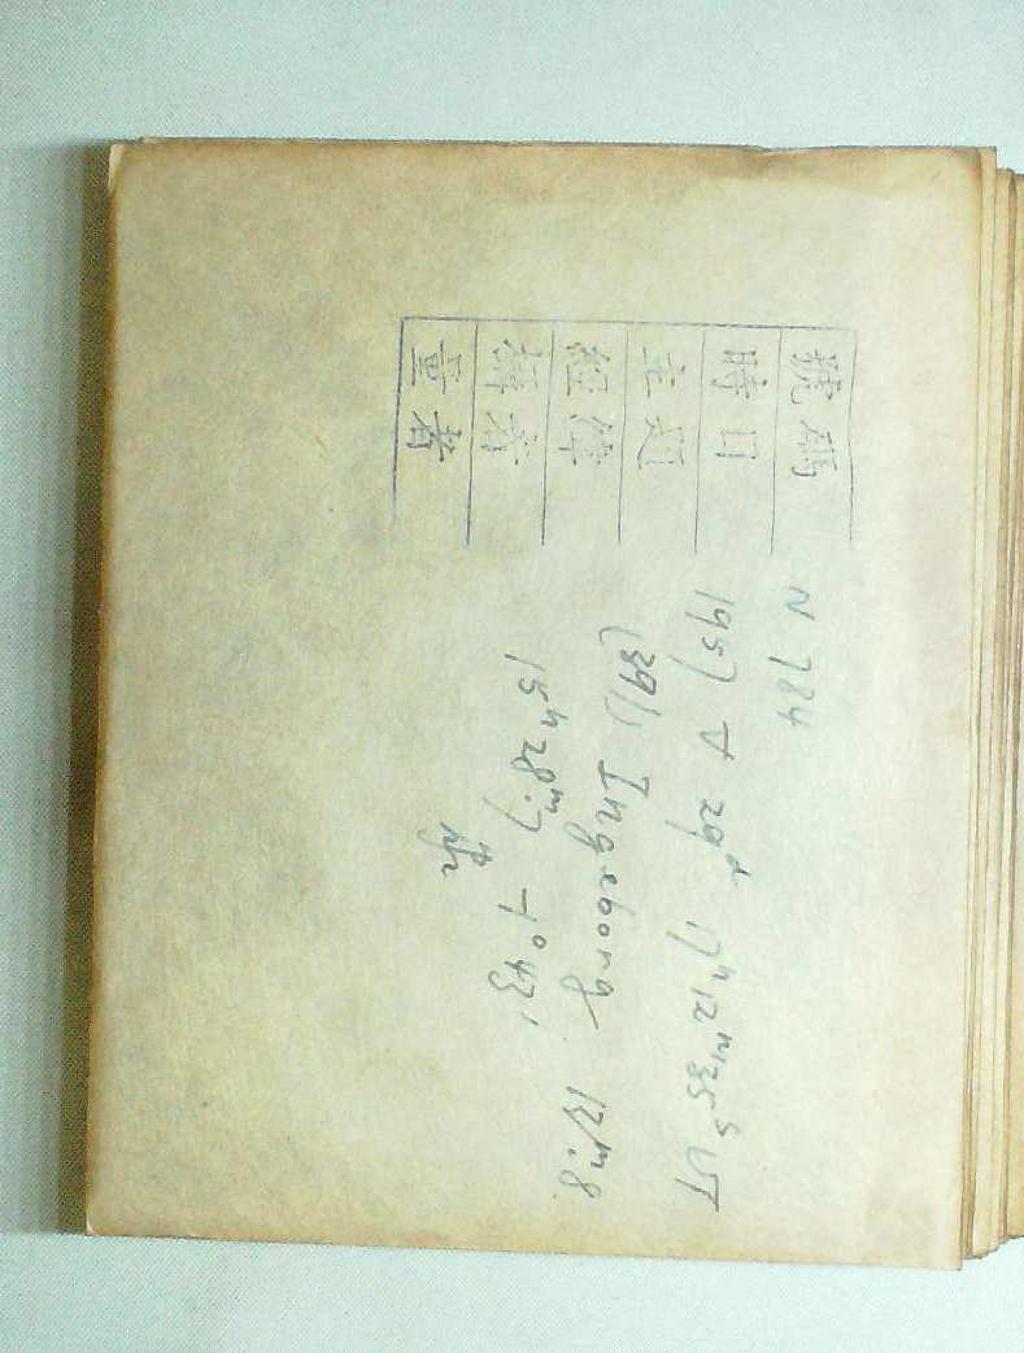 號碼 N 784
時日 1957 V 29ᵈ 17ʰ12ᵐ35ˢ UT
主題 (391) Ingeborg 12ᵐ.8
經緯 15ʰ28ᵐ.7 -1°43'
攝者
量者